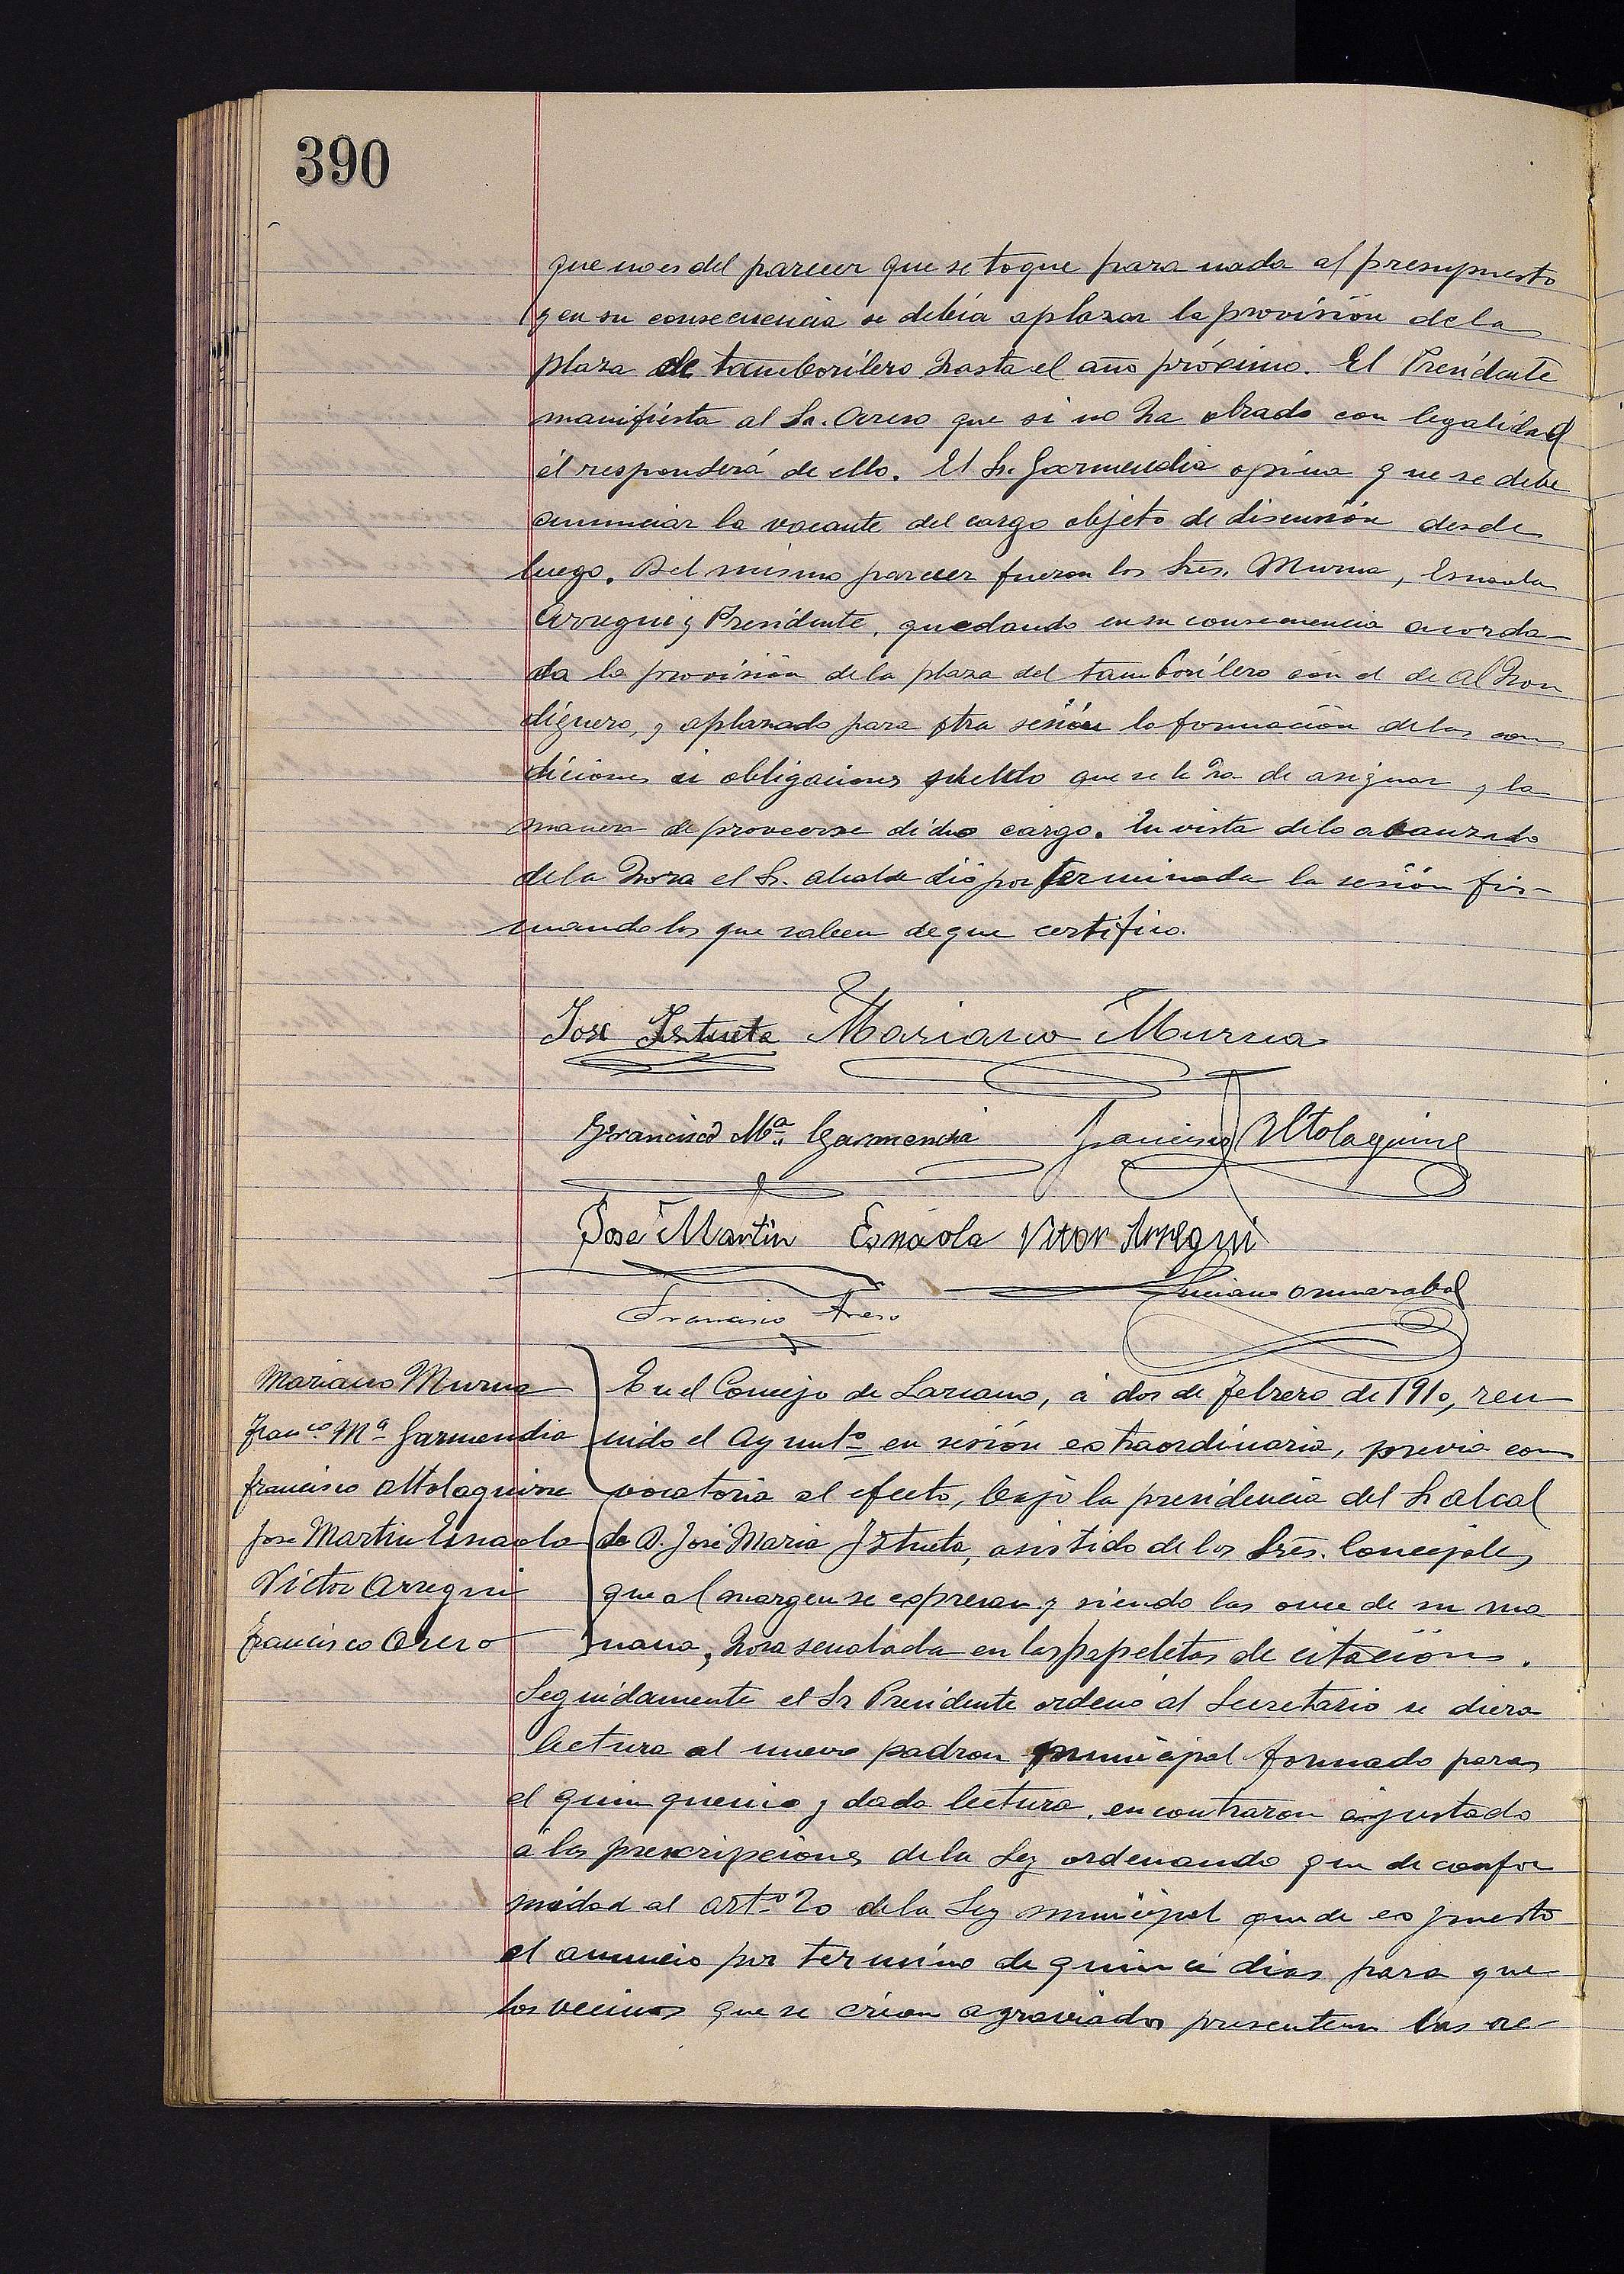 390
que no es del parecer que se toque para nada al presupuesto
y en su consecuencia se debía aplazar la provisión de la
plaza de tamborilero hasta el año próximo. El Presidente
manifiesta al Sr. Areso que si no ha obrado con legalidad
él responderá de ello. El Sr. Garmendia opina que se debe
anunciar la vacante del cargo objeto de discusión desde
luego. Del mismo parecer fueron los Sres. Murua, Esnaola
Arregui y Presidente, quedando en su consecuencia acorda-
da la provisión de la plaza del tamborilero con el de alhon
diguero, y aplazado para otra sesión la formación de las con
diciones si obligaciones sueldo que se le ha de asignar y la
manera de proveerse dicho cargo. En vista de lo abanzado
de la hora el Sr. alcalde dió por terminada la sesión fir-
mando los que saben de que certifico.
José Iztueta Mariano Murua
Francisco Mª Garmendia Francisco Altolaguirre
José Martin Esnaola Vitor Arregui
Francisco Areso Luciano Ormazabal
Mariano Murua
Franco Mª Garmendia
Francisco Altolaguirre
José Martin Esnaola
Victor Arregui
Francisco Areso
En el Concejo de Lazcano, á dos de Febrero de 1910, reu
nido el Ayuntº en sesión extraordinaria, previa con
vocatoria al efecto, bajo la presidencia del Sr alcal
de D. José Maria Iztueta, asistido de los Sres. Concejales
que al margen se expresan y siendo las once de su ma
ñana, hora señalada en las papeletas de citación.
Seguidamente el Sr Presidente ordenó al Secretario se diera
lectura al nuevo padron municipal formado para
el quinquenio y dada lectura, encontraron ajustado
á las prescripciones de la Ley ordenando que de confor
midad al artº 20 de la Ley municipal quede expuesto
el anuncio por termino de quince dias para que
los vecinos que se crean agraviados presenten las re-